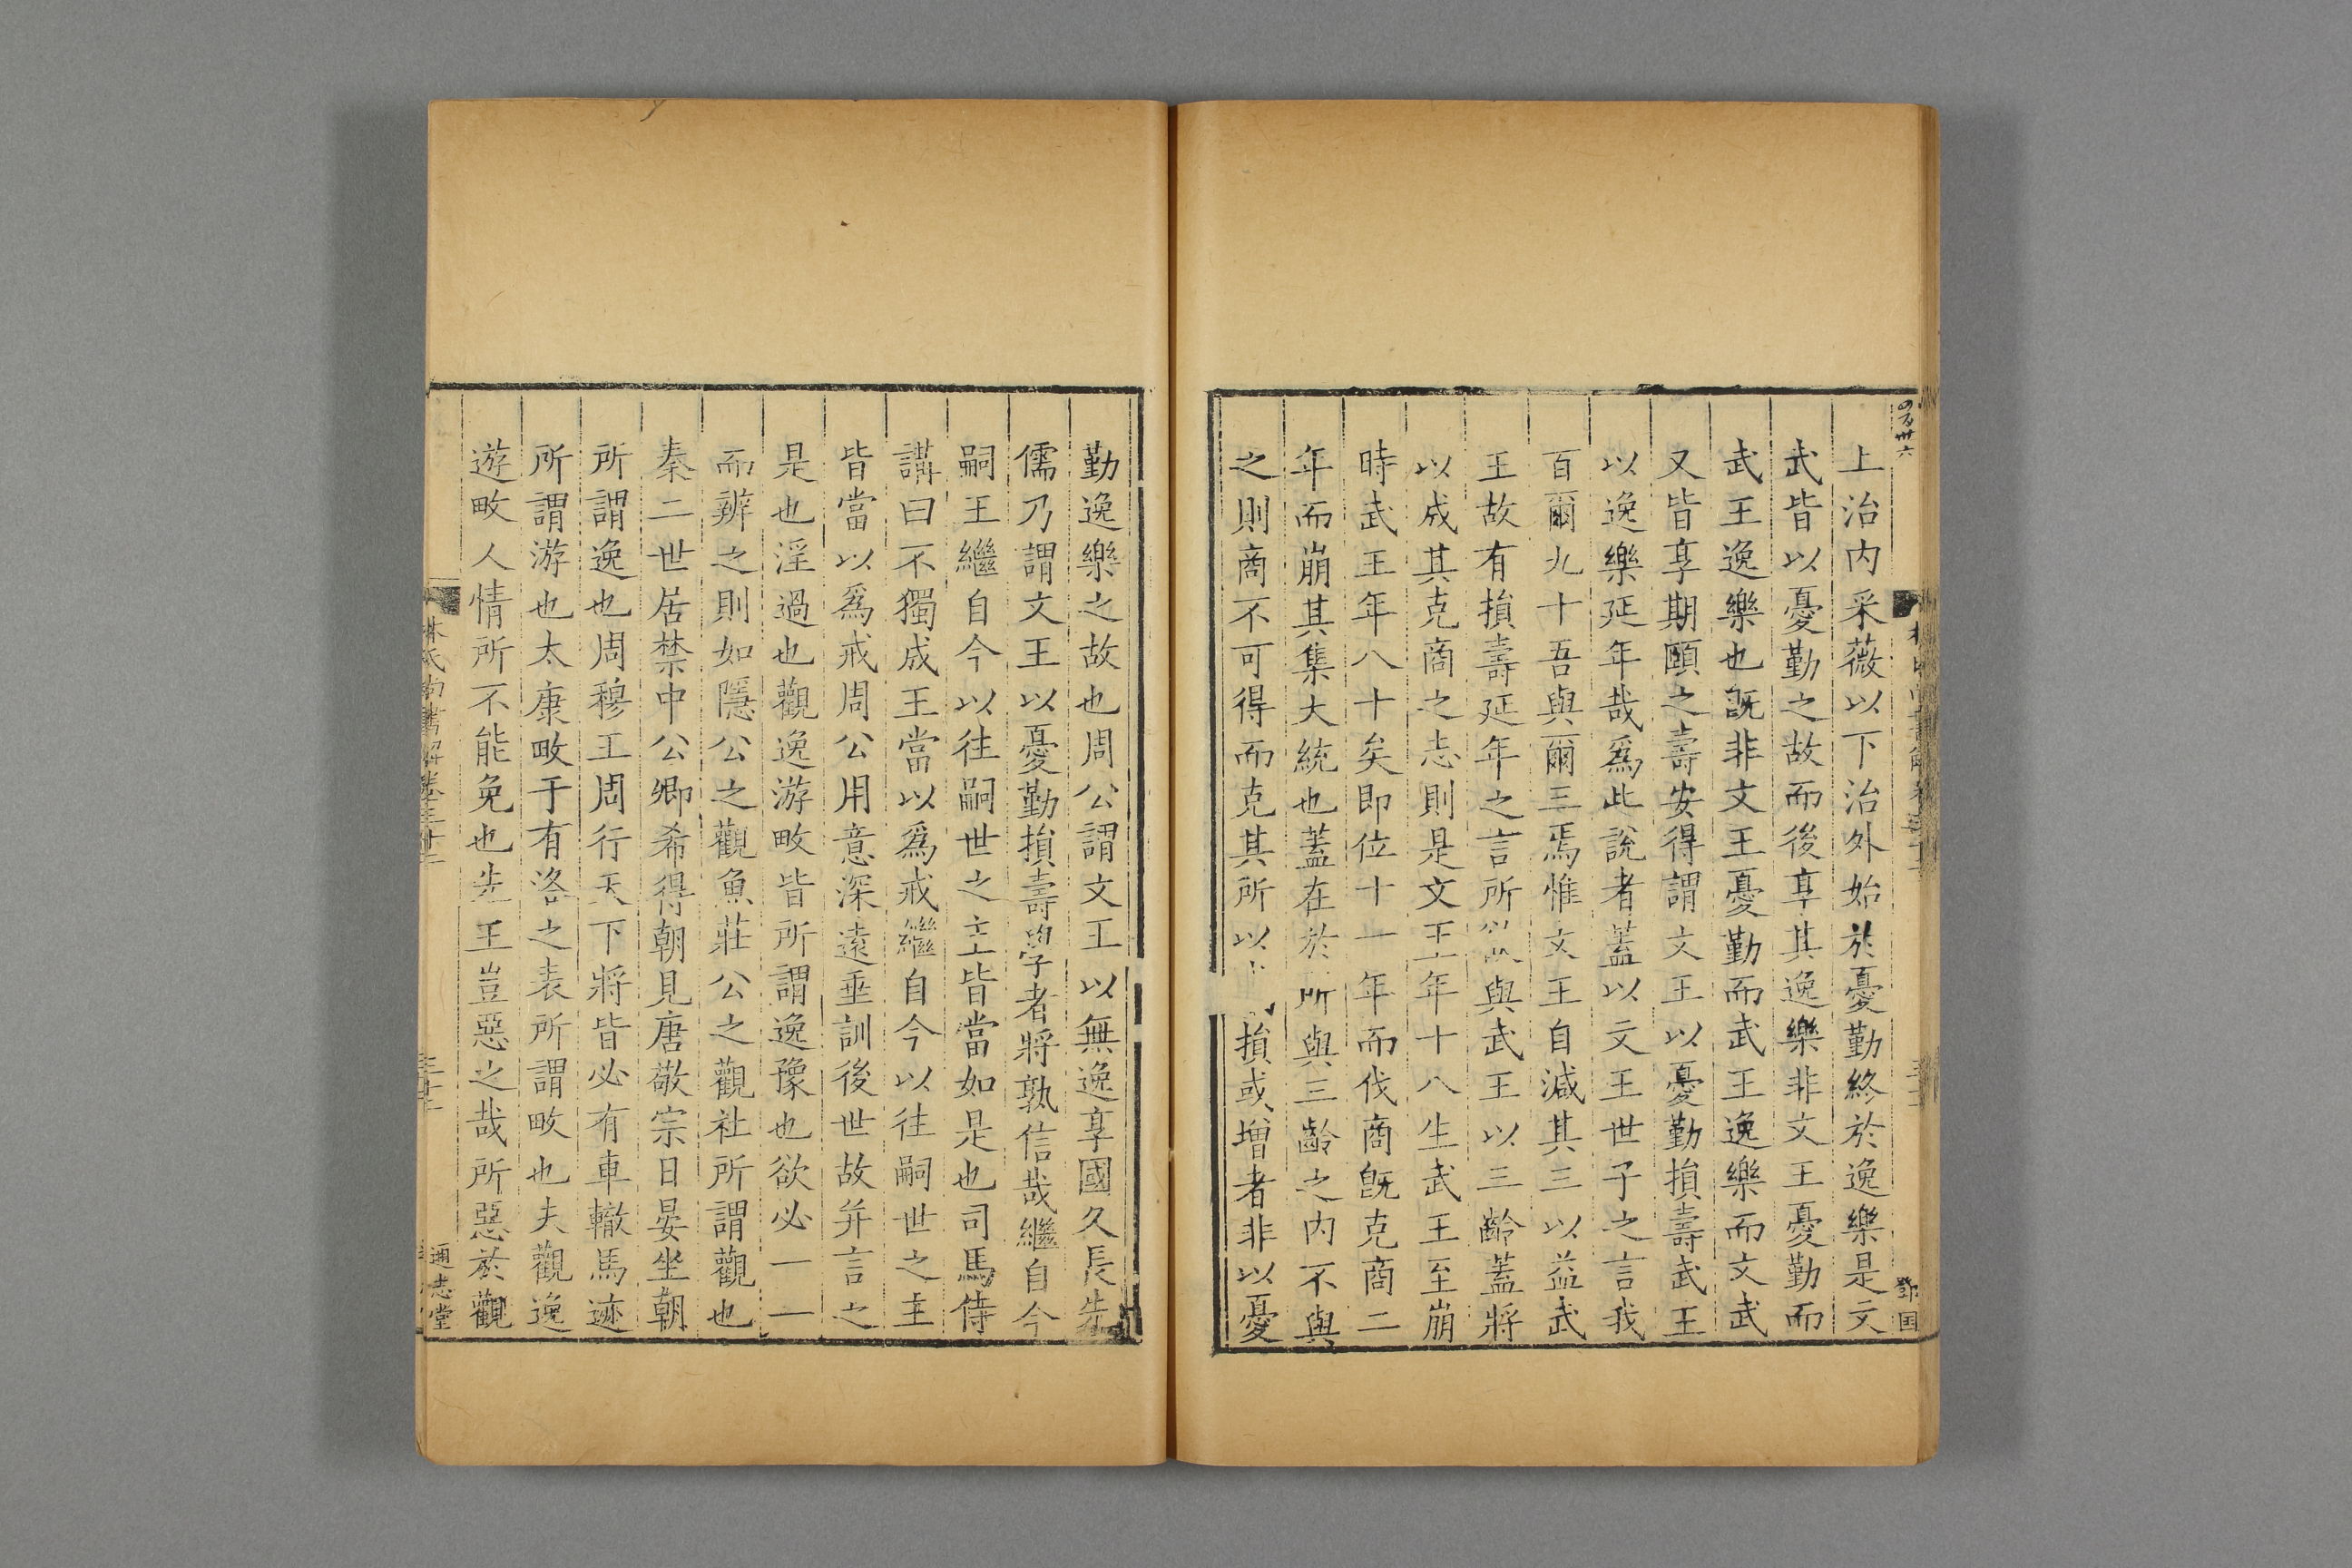 上治内采薇以下治外始於憂勤終於逸樂是文
武皆以憂勤之故而後享其逸樂非文王憂勤而
武王逸樂也旣非文王憂勤而武王逸樂而文武
又皆享期頤之壽安得謂文王以憂勤損壽武王
以逸樂延年哉爲此說者蓋以文王世子之言我
百爾九十吾與爾三焉惟文王自減其三以益武
王故有損壽延年之言所以與武王以三齡蓋將
以成其克商之志則是文王年十八生武王至崩
時武王年八十矣即位十一年而伐商旣克商二
年而崩其集大統也蓋在於所與三齡之内不與
之則商不可得而克其所以損或增者非以憂
勤逸樂之故也周公謂文王以無逸享國久長先
儒乃謂文王以憂勤損壽學者將孰信哉繼自今
嗣王繼自今以往嗣世之主皆當如是也司馬侍
講曰不獨成王當以爲戒繼自今以往嗣世之主
皆當以爲戒周公用意深遠垂訓後世故并言之
是也淫過也觀逸游畋皆所謂逸豫也欲必一一
而辨之則如隱公之觀魚莊公之觀社所謂觀也
秦二世居禁中公卿希得朝見唐敬宗日晏坐朝
所謂逸也周穆王周行天下將皆必有車轍馬迹
所謂游也太康畋于有洛之表所謂畋也夫觀逸
遊畋人情所不能免也先王豈惡之哉所惡於觀
林氏尚書解卷三十二
通志堂